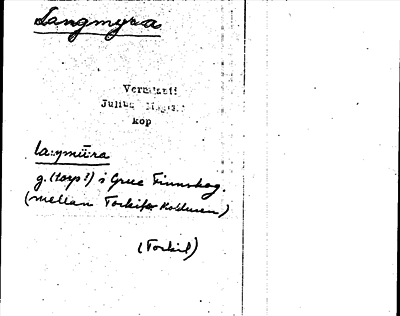 Langmyra
Vermlant:
Julius
kop
la:ŋmÿra
g. (torp?) i Grue Finnskog.
(mellan Torkil
(Torkil)